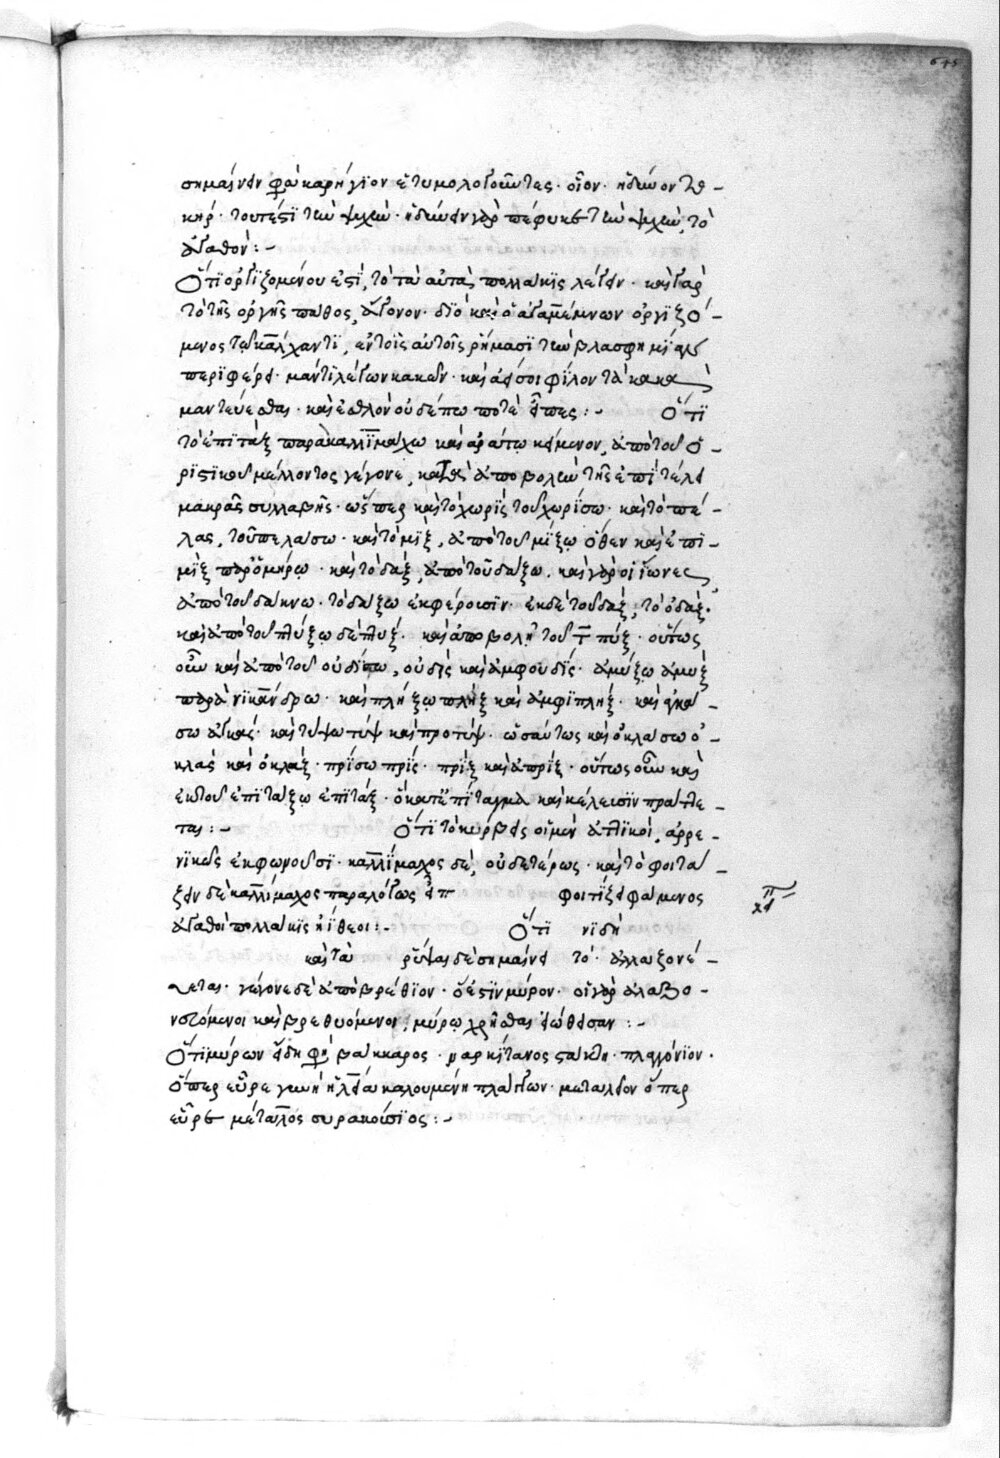 σημαίνειν φασὶ καρήγιον ἐτυμολογοῦντες· οἷον· ἡδεῖον τῷ
κηρ· τουτέστι τὴν ψυχήν· ἡδύνειν γὰρ πέφυκε τὴν ψυχὴν, τὸ
ἀγαθόν :-
Ὅτι ὀργιζομένου ἐστὶ, τὸ τὰ αὐτὰ πολλάκις λέγειν· καὶ γὰρ
τὸ τῆς ὀργῆς πάθος, διὸ καὶ ὁ ἀγαμέμνων ὀργιζό-
μενος τῷ κάλχαντι, ἐν τοῖς αὐτοῖς ῥήμασι τὴν βλασφημίαν
περιφέρει· μάντι λέγων κακῶν· καὶ ἀεί σοι φίλον τὰ κακὰ
μαντεύεσθαι· καὶ ἐσθλὸν οὐδέπω ποτὲ εἶπες :- Ὅτι
τὸ ἐπιτὰξ παρὰ καλλιμάχῳ καὶ ἀράτῳ κείμενον, ἀπὸ τοῦ ὁ-
ριστικοῦ μέλλοντος γέγονε, κατὰ ἀποβολὴν τῆς ἐπὶ τέλει
μακρᾶς συλλαβῆς· ὥσπερ καὶ τὸ χωρὶς τοῦ χωρίσω· καὶ τὸ πέ-
λας, τοῦ πελάσω· καὶ τὸ μὶξ, ἀπὸ τοῦ μίξω ὅθεν καὶ ἐπι-
μὶξ παρ' ὁμήρῳ· καὶ τὸ δὰξ, ἀπὸ τοῦ δάξω. καὶ γὰρ οἱ ἴωνες
ἀπὸ τοῦ δάκνω· τὸ δάξω ἐκφέρουσιν· ἐκ δὲ τοῦ δὰξ, τὸ ὀδάξ·
καὶ ἀπὸ τοῦ πλύξω δὲ πλυξ· καὶ ἀποβολῇ τοῦ πύξ· οὕτως
οὖν καὶ ἀπὸ τοῦ οὐδίσω, οὐδὶς καὶ ἀμφουδίς· ἀμύξω ἀμὺξ
παρὰ νικάνδρῳ· καὶ πλήξω πλὴξ καὶ ἀμφιπλήξ· καὶ ἀγκά-
σω ἀγκάς· καὶ τύψω τὺψ καὶ προτύψ· ὡσαύτως καὶ ὀκλάσω ὀ-
κλὰς καὶ ὀκλάξ· πρίσω πρίς· πρὶξ καὶ ἀπρίξ· οὕτως οὖν καὶ
ἐκ τοῦ ἐπιτάξω ἐπιτάξ· ὃ κατ' ἐπίταγμα καὶ κέλευσιν πράττε-
ται :- Ὅτι τὸ κύρβεις οἱ μὲν ἀττικοὶ, ἀρρε-
νικῶς ἐκφωνοῦσι· καλλίμαχος δὲ, οὐδετέρως· καὶ τὸ φοιτά-
ζειν δὲ καλλίμαχος παραλόγως εἶπ φοιτίζει φάμενος
ἀγαθοὶ πολλάκις ἠίθεοι :- Ὅτι νιδη
κατὰ ῥίψας δὲ σημαίνει τὸ· ἀλαζονε-
ύεται· γέγονε δὲ ἀπὸ βρένθιον· ὅ ἐστιν μύρον· οἱ γὰρ ἀλαζο-
νευόμενοι καὶ βρενθυόμενοι, μύρῳ χρῆσθαι εἰώθασαν :-
Ὅτι μύρων εἴδη φησὶ, βάκκαρος· μαρκίτανος στακτὴ· πλαγόνιον·
ὅπερ εὗρε γυνὴ ἠλεία καλουμένη πλαγγών· μετάλειον ὅπερ
εὗρε μέταλλος συρακούσιος :-